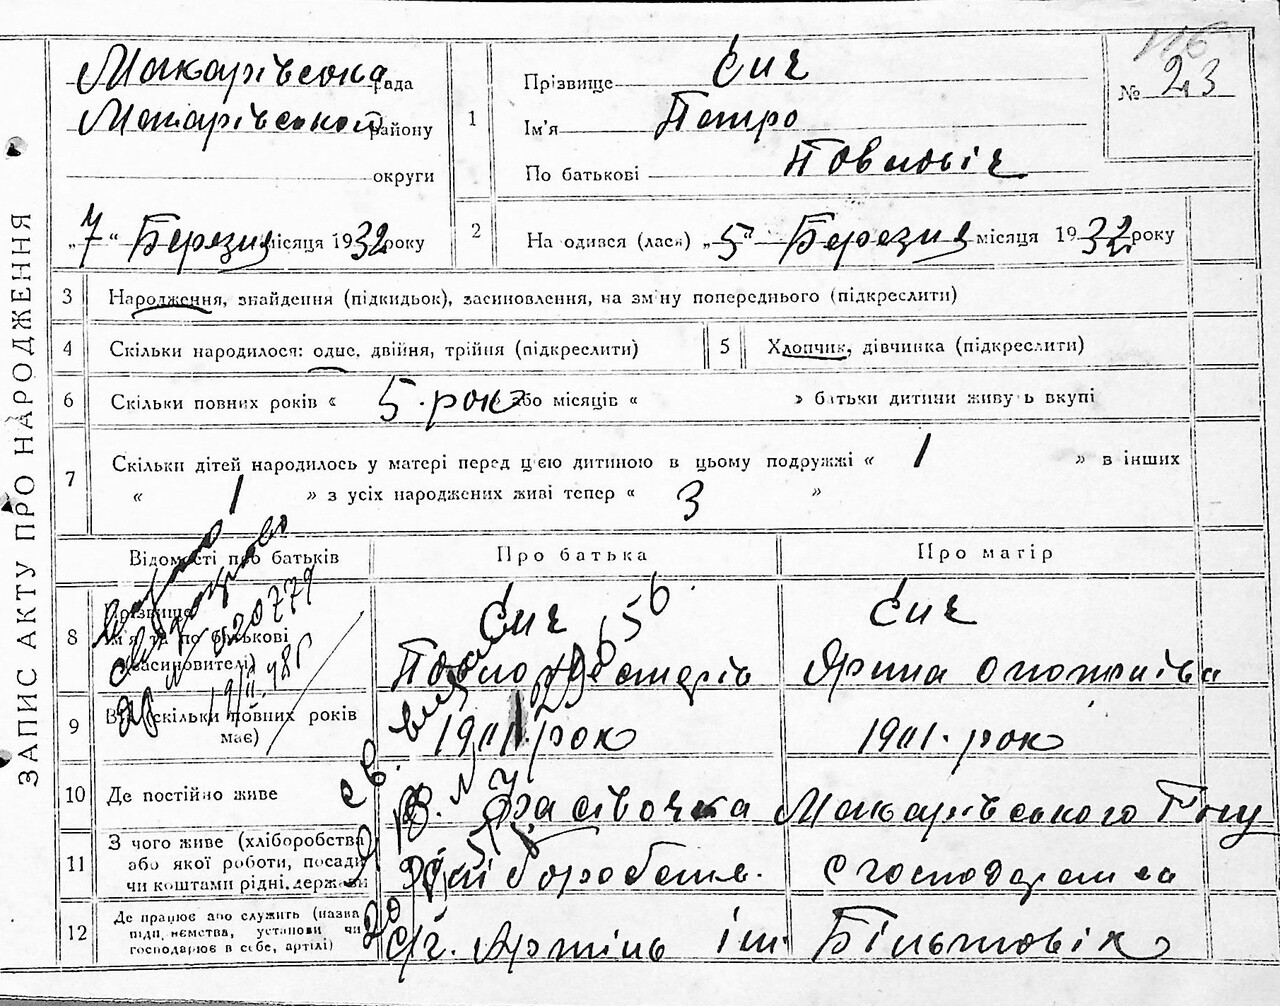 ЗАПИС АКТУ ПРО НАРОДЖЕННЯ
Макарівська рада
Макарівський району
округи
„7“ Березня місяця 1932 року
1
Прізвище Сич
Ім'я Петро
По батькові Повлович
116
№ 23
2
На одився (лася) „5“ Березня місяця 1932 року
3 Народження, знайдення (підкидьок), засиновлення, на зм'ну попереднього (підкреслити)
4 Скільки народилося: одне, двійня, трійня (підкреслити)
5 Хлопчик, дівчинка (підкреслити)
6 Скільки повних років « 5. рок або місяців « » батьки дитини живуть вкупі
7 Скільки дітей народилось у матері перед цією дитиною в цьому подружжі « 1 » в інших
« 1 » з усіх народжених живі тепер « 3 »
Відомості про батьків
Про батька
Про матір
8 Прізвище
ім'я та по батькові
(засиновителі)
Сич
Сич
Ярина
9 В скільки повних років
має)
1901. рок
1901. рок
10 Де постійно живе
Макарівського
11 З чого живе (хліборобства
або якої роботи, посади
чи коштами рідні, держави
12 Де працює або служить (назва
підприємства, установи чи
господарює в себе, артілі)
с/г. Артіль ім. Більшовік